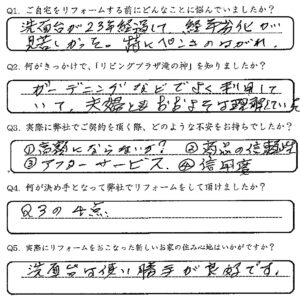 Q1. ご自宅をリフォームする前にどんなことに悩んでいましたか？
洗面台が23年経過して、経年劣化が
見苦しかった。特にペンキのはがれ。
Q2. 何がきっかけで、「リビングプラザ滝の神」を知りましたか？
ガーデニングなどでよく利用して
いて、夫婦ともおおよそは理解していた
Q3. 実際に弊社でご契約を頂く際、どのような不安をお持ちでしたか？
①高額にならないか？ ②商品の信頼性
③アフターサービス. ④信用度
Q4. 何が決め手となって弊社でリフォームをして頂けましたか？
Q3の4点.
Q5. 実際にリフォームをおこなった新しいお家の住み心地はいかがですか？
洗面台は使い勝手が良好です。